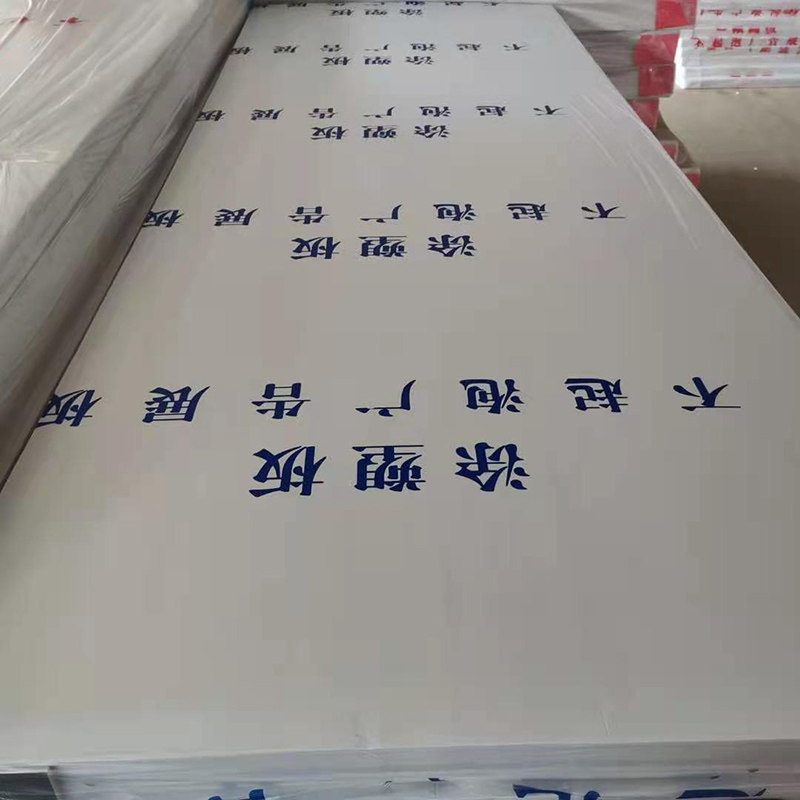 涂塑板
不起泡广告展板
涂塑板
不起泡广告展板
涂塑板
不起泡广告展板
涂塑板
不起泡广告展板
涂塑板